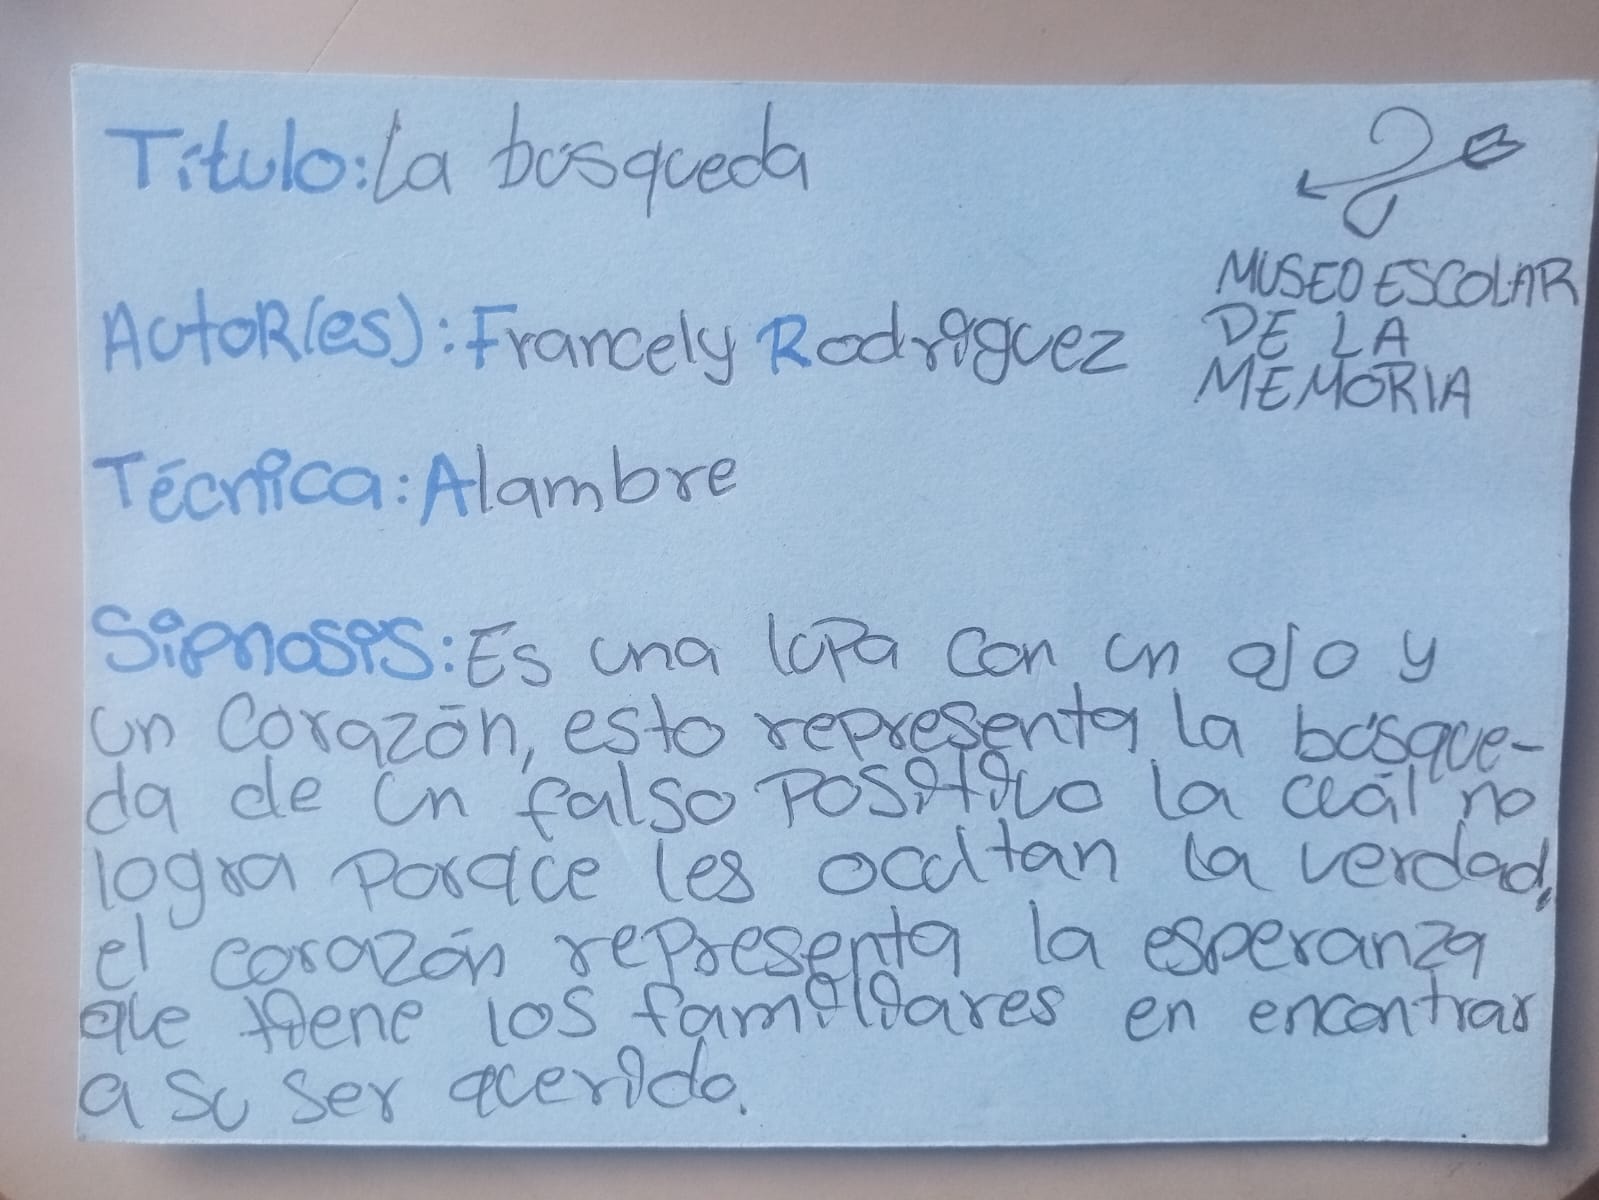 Título: La búsqueda
MUSEO ESCOLAR
DE LA
MEMORIA
Autor(es): Francely Rodriguez
Técnica: Alambre
Sipnosis: Es una lupa con un ojo y
un corazón, esto representa la búsque-
da de un falso positivo la cuál no
logra porque les ocultan la verdad,
el corazón representa la esperanza
que tiene los familiares en encontrar
a su ser querido.